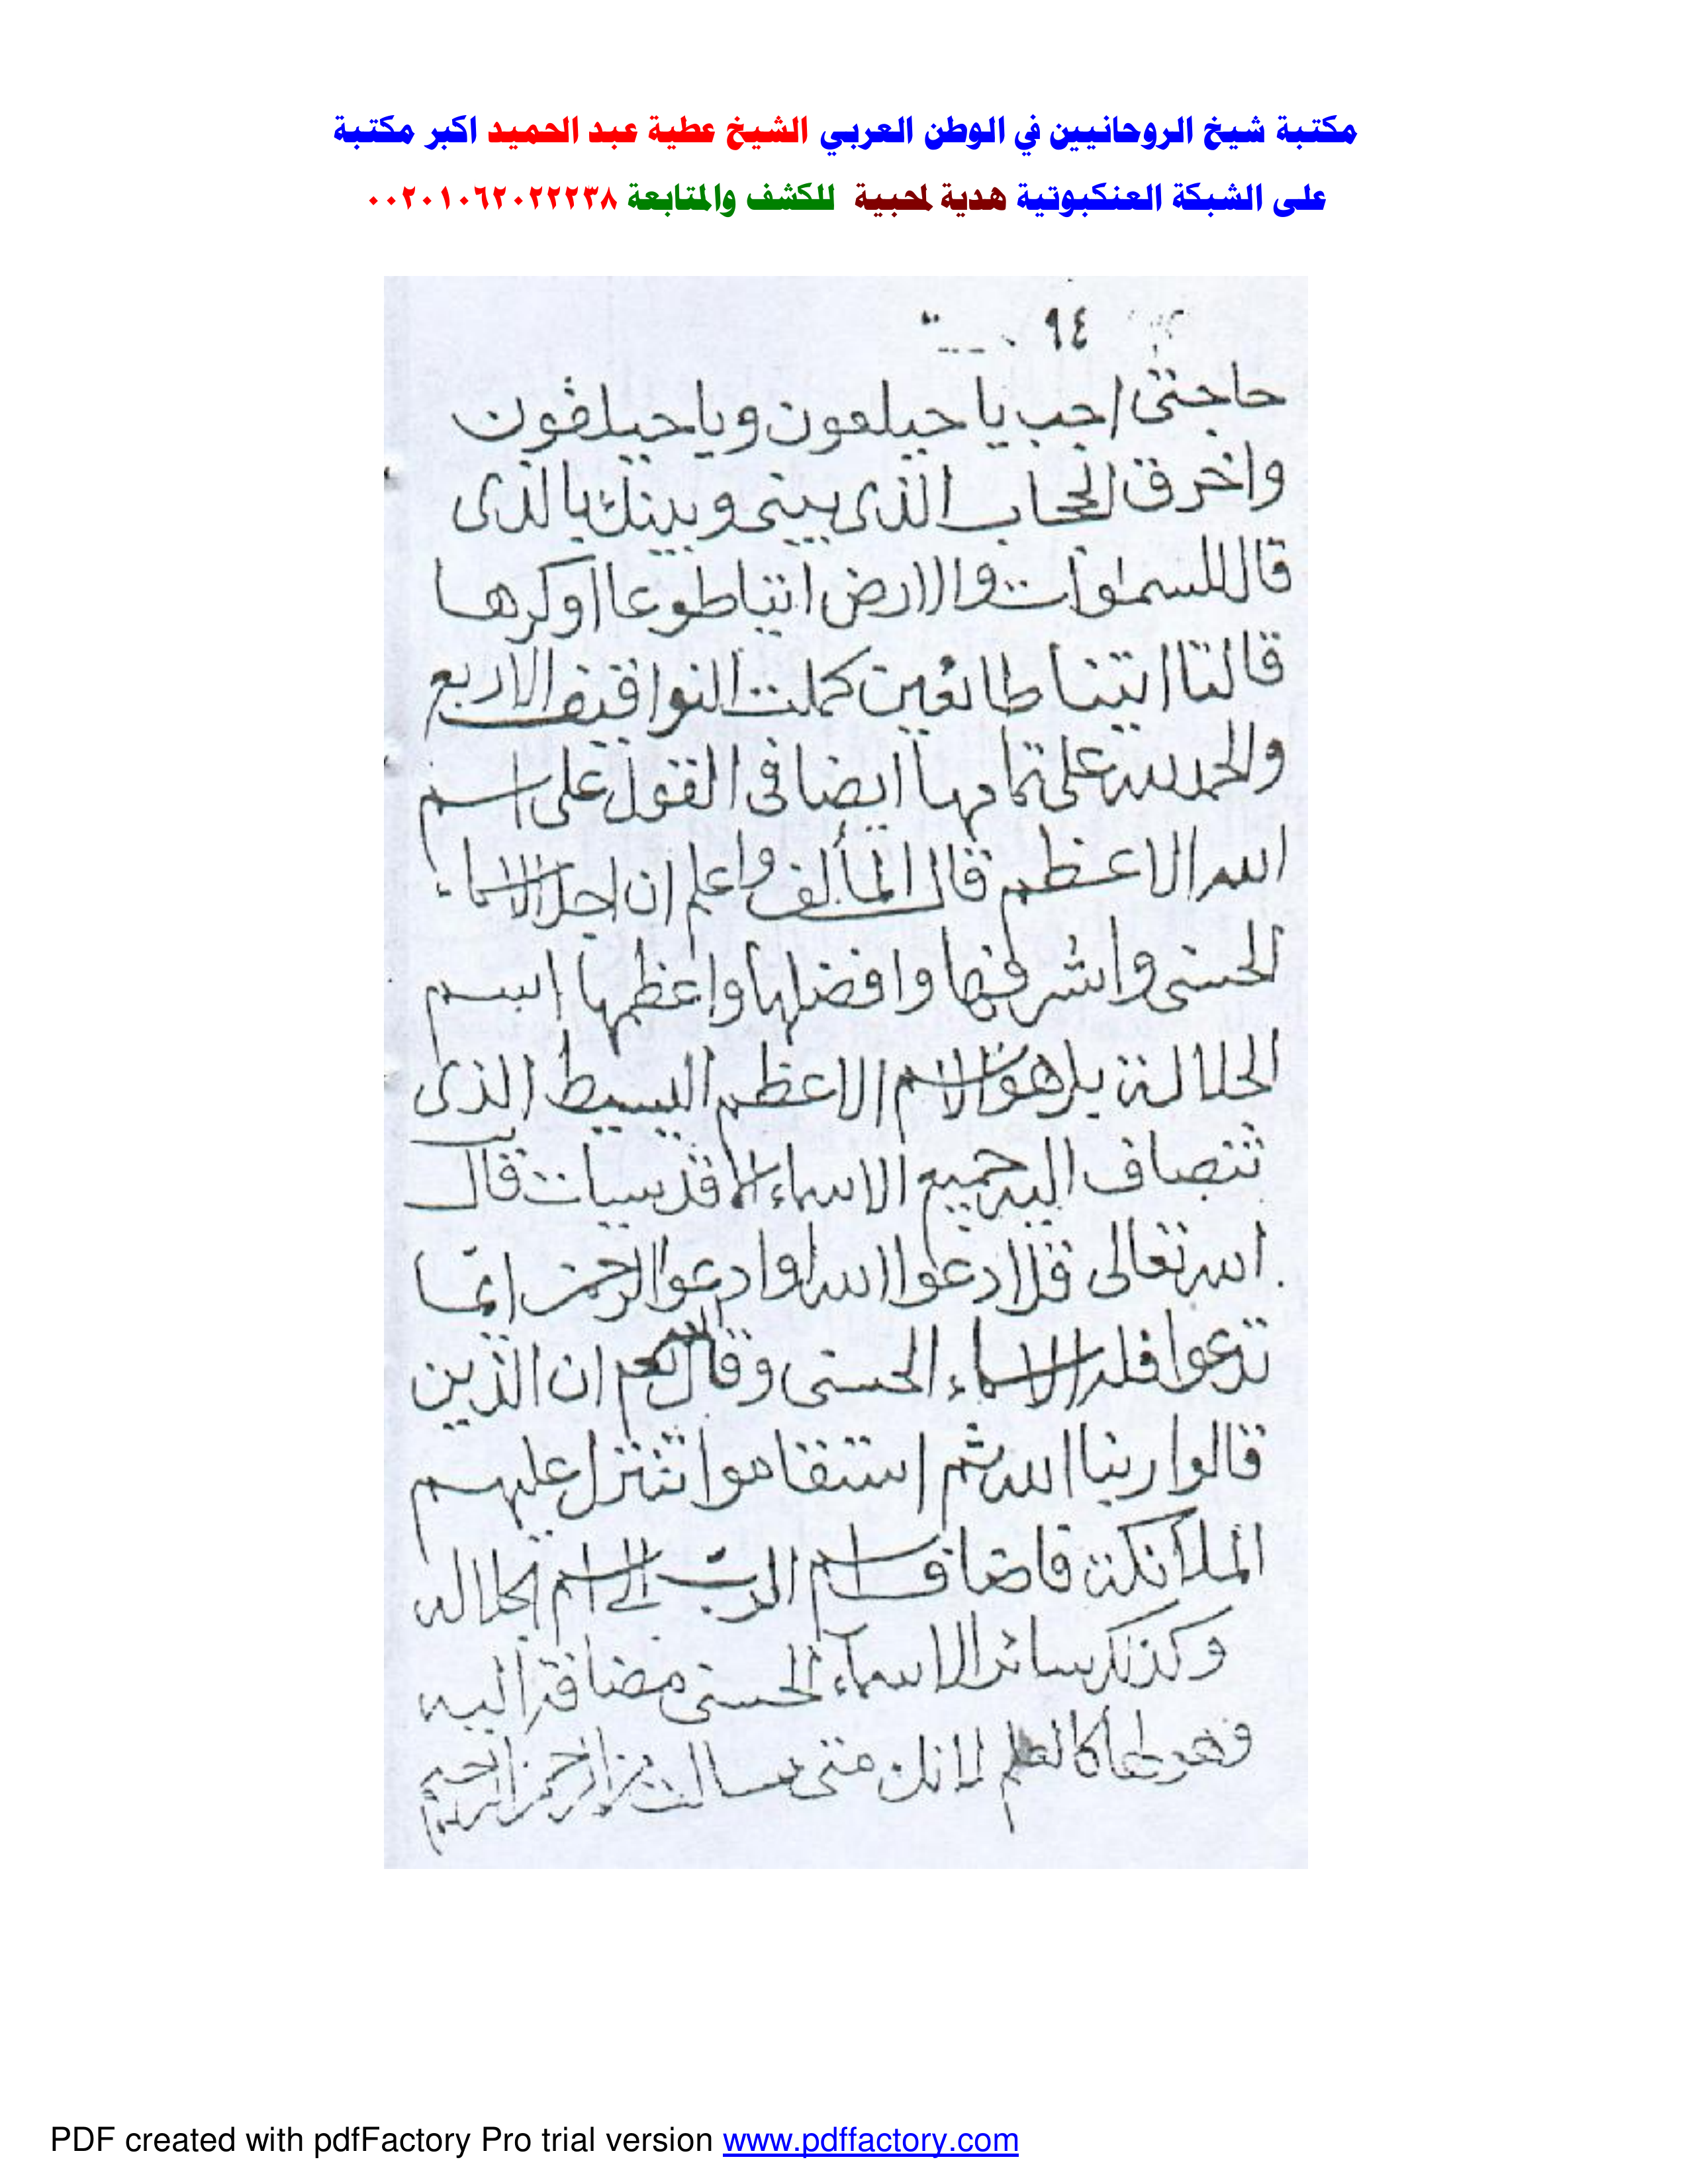 مكتبة شيخ الروحانيين في الوطن العربي الشيخ عطية عبد الحميد اكبر مكتبة
على الشبكة العنكبوتية هدية لمحبية للكشف والمتابعة ٠٠٢٠١٠٦٢٠٢٢٢٣٨
٩٤
حاجتى اجب يا حيلعون ويا حيلفون
واخرق الحجاب الذى بينى وبينك بالذى
قال للسموات والارض ائتيا طوعا اوكرها
قالتا اتينا طائعين كملت النواقيف الاربع
والحمد لله على تمامها ايضا فى القول على اسم
الله الاعظم قال المألف واعلم ان اجل الاسماء
الحسنى واشرفها وافضلها واعظمها اسم
الجلالة بل هو الاسم الاعظم البسيط الذى
تتصاف اليه جميع الاسماء قدسيات قال
الله تعالى قل ادعوا الله اوادعوا الرحمن ايما
تدعوا فله الاسماء الحسنى وقال الله ان الذين
قالوا ربنا الله ثم استقاموا تتنزل عليهم
الملائكة فاضاف اسم الرب الى اسم الجلاله
وكذلك سائر الاسماء الحسنى مضافة اليه
وهو لها كالعلم لانك متى سالت من الرحمن الرحيم
PDF created with pdfFactory Pro trial version www.pdffactory.com